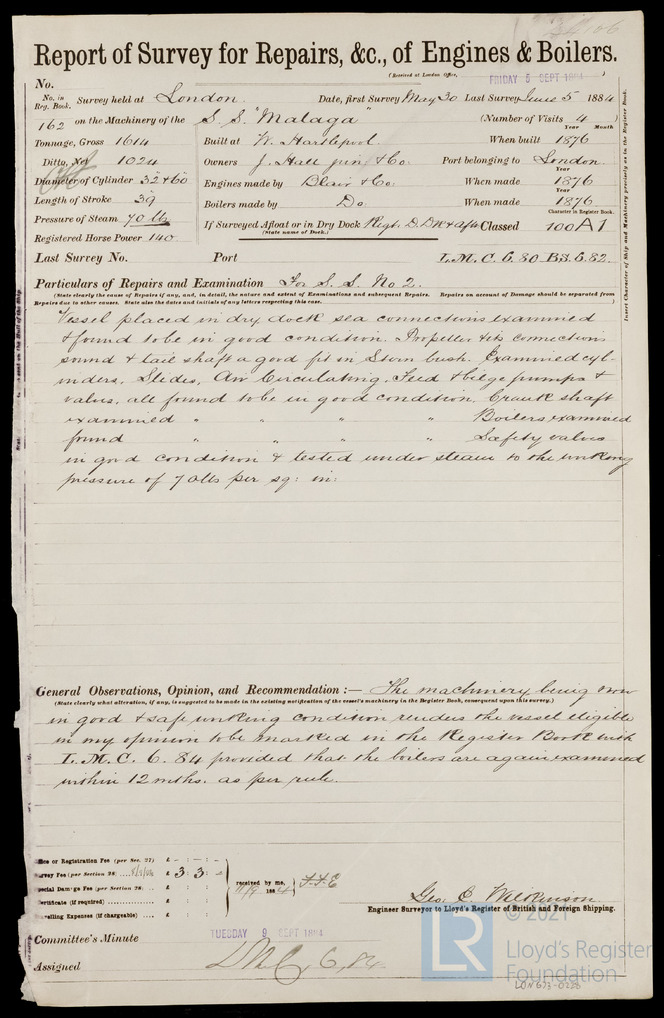 Report of Survey for Repairs, &c., of Engines & Boilers.
(Received at London Office, FRIDAY 5 SEPT 1884 )
No.
No. in Reg. Book. Survey held at London. Date, first Survey May 30 Last Survey June 5 1884
162 on the Machinery of the S.S. "Malaga" (Number of Visits 4)
Year Month
Tonnage, Gross 1614 Built at W. Hartlepool. When built 1876
Ditto, Net 1024 Owners J. Hall jun & Co: Port belonging to London
Diameter of Cylinder 32 & 60 Engines made by Blair & Co: When made 1876
Length of Stroke 39 Boilers made by Do When made 1876
Pressure of Steam 70 lb If Surveyed Afloat or in Dry Dock Regt. D. Dk & aft Classed 100 A1
(State name of Dock.) Character in Register Book.
Registered Horse Power 140
Last Survey No. Port L.M.C. 6.80 B.S. 6.82.
Particulars of Repairs and Examination For S.S. No 2.
(State clearly the cause of Repairs if any, and, in detail, the nature and extent of Examinations and subsequent Repairs. Repairs on account of Damage should be separated from
Repairs due to other causes. State also the dates and initials of any letters respecting this case.)
Vessel placed in dry dock sea connections examined
& found to be in good condition. Propeller & its connections
sound & tail shaft a good fit in Stern bush. Examined cyl-
inders, Slides, Air Circulating, Feed & bilge pumps &
valves, all found to be in good condition. Crank shaft
examined " " " " Boilers examined
found " " " " Safety valves
in good condition & tested under steam to the working
pressure of 70 lbs per sq: in:
General Observations, Opinion, and Recommendation :— The machinery being now
(State clearly what alteration, if any, is suggested to be made in the existing notification of the vessel's machinery in the Register Book, consequent upon this survey.)
in good & safe working condition renders the vessel eligible
in my opinion to be marked in the Register Book with
L.M.C. 6.84 provided that the boilers are again examined
within 12 mths. as per rule.
Insert Character of Ship and Machinery precisely as in the Register Book.
Office or Registration Fee (per Sec. 27) £ - : - : -
Survey Fee (per Section 28) £ 3 : 3 : -
Special Damage Fee (per Section 28) £ : :
Certificate (if required) £ : :
Travelling Expenses (if chargeable) £ : :
received by me,
11/9 1884
Geo. C. Wilkinson
Engineer Surveyor to Lloyd's Register of British and Foreign Shipping.
Committee's Minute TUESDAY 9 SEPT 1884
Assigned L.M.C. 6.84
© 2021
LR
Lloyd's Register
Foundation
LON693-0238